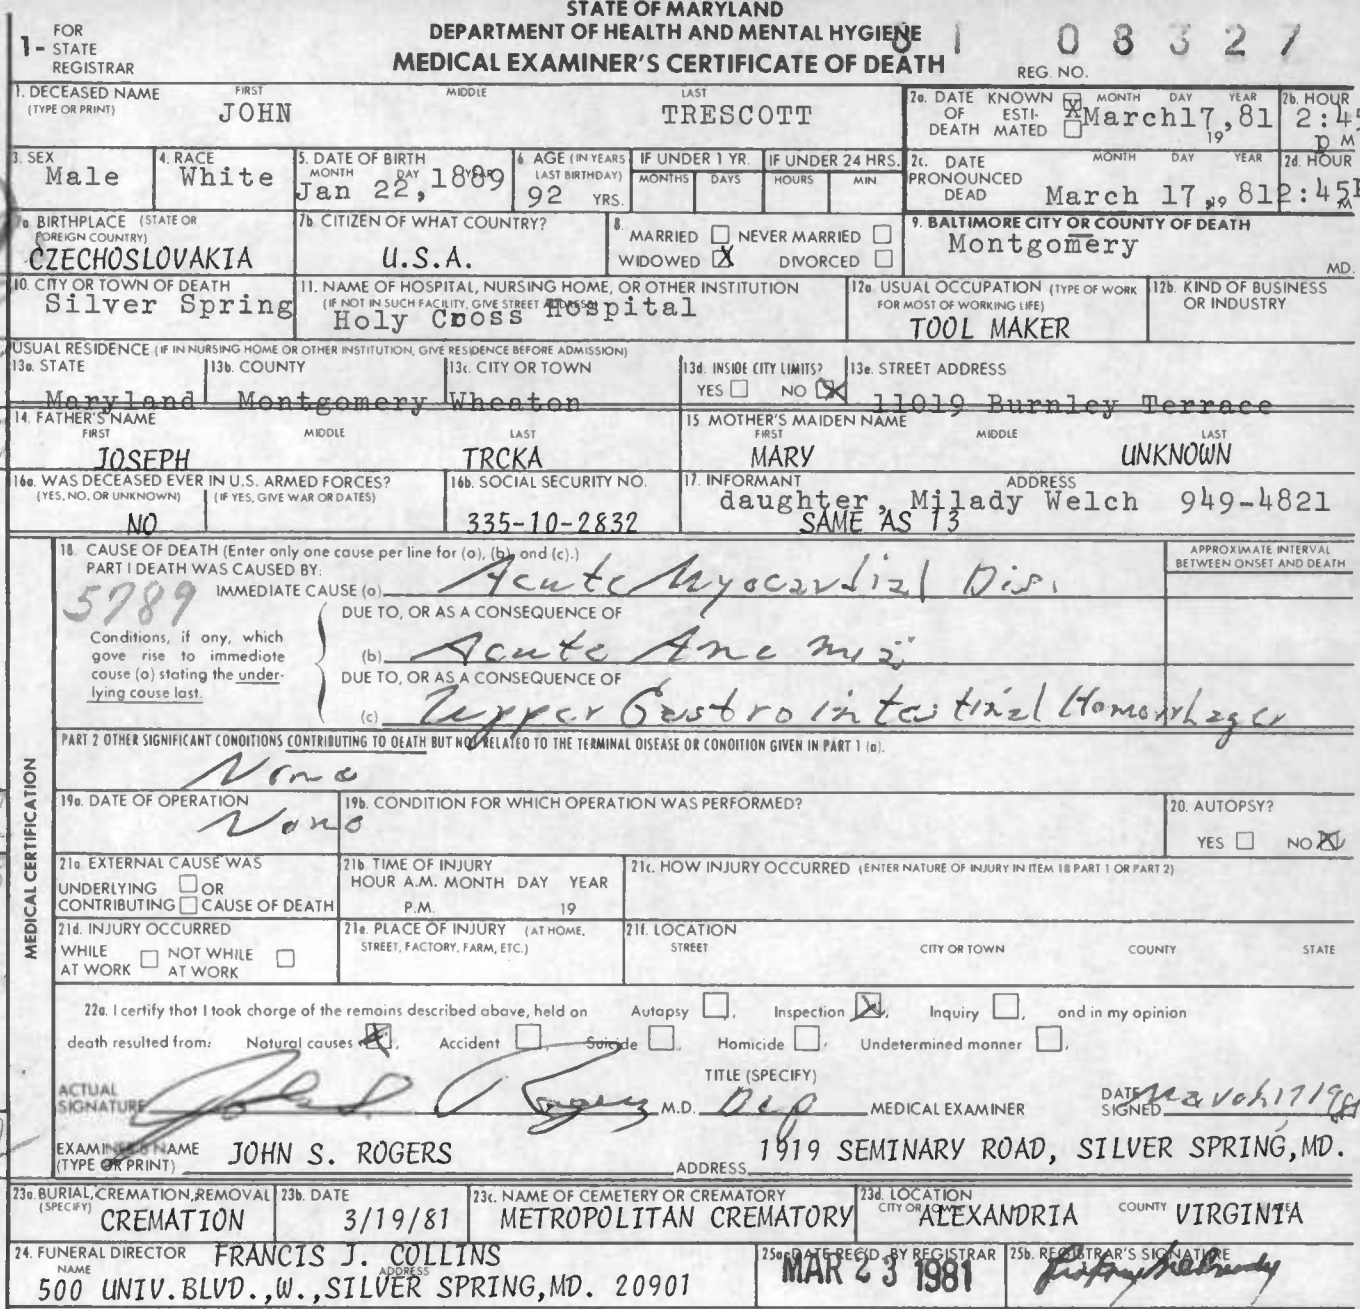 STATE OF MARYLAND
DEPARTMENT OF HEALTH AND MENTAL HYGIENE
MEDICAL EXAMINER'S CERTIFICATE OF DEATH
1- FOR STATE REGISTRAR
REG. NO. 81 08327
1. DECEASED NAME (TYPE OR PRINT) FIRST MIDDLE LAST
JOHN TRESCOTT
2a. DATE OF DEATH KNOWN X ESTIMATED MONTH DAY YEAR
March 17, 19 81
2b. HOUR
2:45 p M
3. SEX
Male
4. RACE
White
5. DATE OF BIRTH MONTH DAY YEAR
Jan 22, 1889
6 AGE (IN YEARS LAST BIRTHDAY)
92 YRS.
IF UNDER 1 YR. MONTHS DAYS
IF UNDER 24 HRS. HOURS MIN
2c. DATE PRONOUNCED DEAD MONTH DAY YEAR
March 17, 19 81
2d. HOUR
2:45P M
7a BIRTHPLACE (STATE OR FOREIGN COUNTRY)
CZECHOSLOVAKIA
7b. CITIZEN OF WHAT COUNTRY?
U.S.A.
8. MARRIED NEVER MARRIED
WIDOWED X DIVORCED
9. BALTIMORE CITY OR COUNTY OF DEATH
Montgomery MD.
10. CITY OR TOWN OF DEATH
Silver Spring
11. NAME OF HOSPITAL, NURSING HOME, OR OTHER INSTITUTION
(IF NOT IN SUCH FACILITY, GIVE STREET ADDRESS)
Holy Cross Hospital
12a USUAL OCCUPATION (TYPE OF WORK FOR MOST OF WORKING LIFE)
TOOL MAKER
12b. KIND OF BUSINESS OR INDUSTRY
USUAL RESIDENCE (IF IN NURSING HOME OR OTHER INSTITUTION, GIVE RESIDENCE BEFORE ADMISSION)
13a. STATE
Maryland
13b. COUNTY
Montgomery
13c. CITY OR TOWN
Wheaton
13d. INSIDE CITY LIMITS?
YES NO X
13e. STREET ADDRESS
11019 Burnley Terrace
14. FATHER'S NAME FIRST MIDDLE LAST
JOSEPH TRCKA
15 MOTHER'S MAIDEN NAME FIRST MIDDLE LAST
MARY UNKNOWN
16a. WAS DECEASED EVER IN U.S. ARMED FORCES?
(YES, NO, OR UNKNOWN) (IF YES, GIVE WAR OR DATES)
NO
16b. SOCIAL SECURITY NO.
335-10-2832
17. INFORMANT ADDRESS
daughter, Milady Welch 949-4821
SAME AS 13
MEDICAL CERTIFICATION
18. CAUSE OF DEATH (Enter only one cause per line for (a), (b), and (c).)
PART I DEATH WAS CAUSED BY:
APPROXIMATE INTERVAL BETWEEN ONSET AND DEATH
5789
IMMEDIATE CAUSE (a) Acute Myocardial Dis.
DUE TO, OR AS A CONSEQUENCE OF
Conditions, if any, which gave rise to immediate cause (a) stating the underlying cause last.
(b) Acute Anemia
DUE TO, OR AS A CONSEQUENCE OF
(c) Upper Gastrointestinal Hemorrhage
PART 2 OTHER SIGNIFICANT CONDITIONS CONTRIBUTING TO DEATH BUT NOT RELATED TO THE TERMINAL DISEASE OR CONDITION GIVEN IN PART 1 (a).
None
19a. DATE OF OPERATION
None
19b. CONDITION FOR WHICH OPERATION WAS PERFORMED?
20. AUTOPSY?
YES NO X
21a EXTERNAL CAUSE WAS
UNDERLYING OR
CONTRIBUTING CAUSE OF DEATH
21b. TIME OF INJURY
HOUR A.M. MONTH DAY YEAR
P.M. 19
21c. HOW INJURY OCCURRED (ENTER NATURE OF INJURY IN ITEM 18 PART 1 OR PART 2)
21d. INJURY OCCURRED
WHILE AT WORK NOT WHILE AT WORK
21e. PLACE OF INJURY (AT HOME, STREET, FACTORY, FARM, ETC.)
21f. LOCATION
STREET CITY OR TOWN COUNTY STATE
22a. I certify that I took charge of the remains described above, held on Autopsy , Inspection X, Inquiry , and in my opinion
death resulted from: Natural causes X, Accident , Suicide , Homicide , Undetermined manner .
ACTUAL SIGNATURE John S. Rogers M.D.
TITLE (SPECIFY)
Dep MEDICAL EXAMINER
DATE SIGNED March 17 1981
EXAMINER'S NAME (TYPE OR PRINT) JOHN S. ROGERS
ADDRESS 1919 SEMINARY ROAD, SILVER SPRING,MD.
23a. BURIAL, CREMATION, REMOVAL (SPECIFY)
CREMATION
23b. DATE
3/19/81
23c. NAME OF CEMETERY OR CREMATORY
METROPOLITAN CREMATORY
23d. LOCATION CITY OR TOWN COUNTY
ALEXANDRIA VIRGINIA
24. FUNERAL DIRECTOR NAME ADDRESS
FRANCIS J. COLLINS
500 UNIV.BLVD.,W.,SILVER SPRING,MD. 20901
25a. DATE REC'D. BY REGISTRAR
MAR 23 1981
25b. REGISTRAR'S SIGNATURE